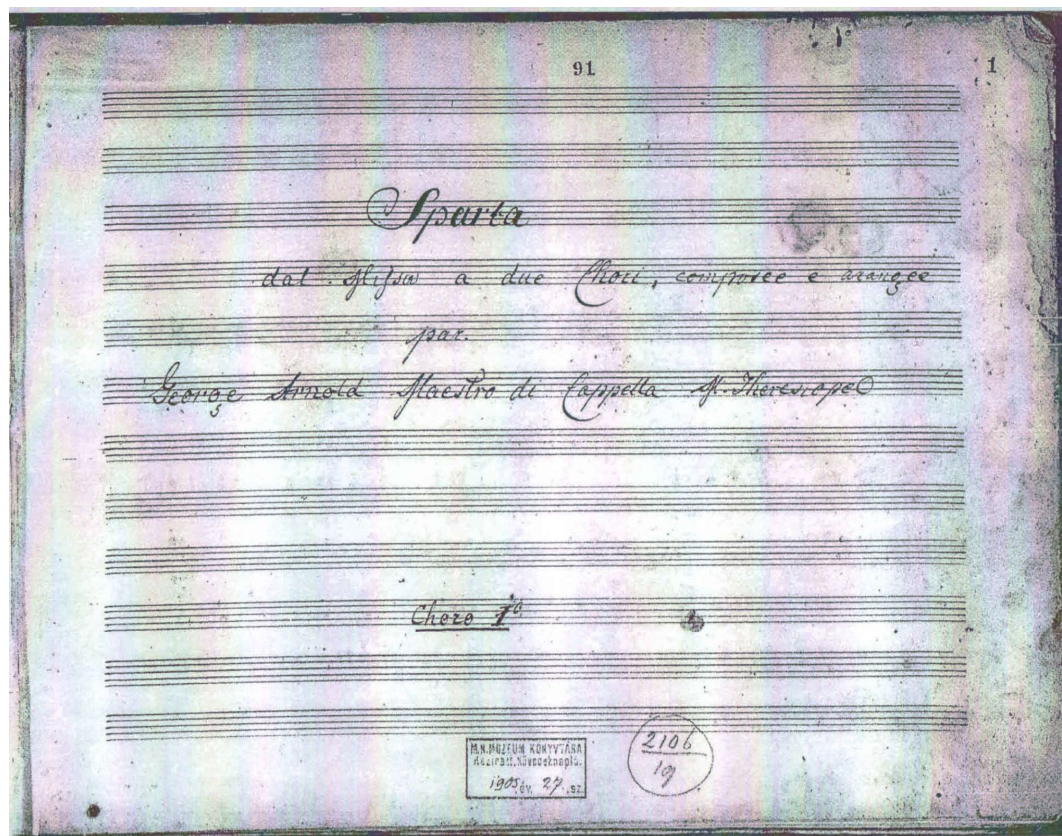 91
1
Sparta
dal Missa a due Chori, composée e arangée
par.
George Arnold Maestro di Cappella M. Theresiopel
Choro 1º
M.N.MÚZEUM KÖNYVTÁRA
Kéziratt. Növedéknapló.
1905 év. 27. sz.
2106
19